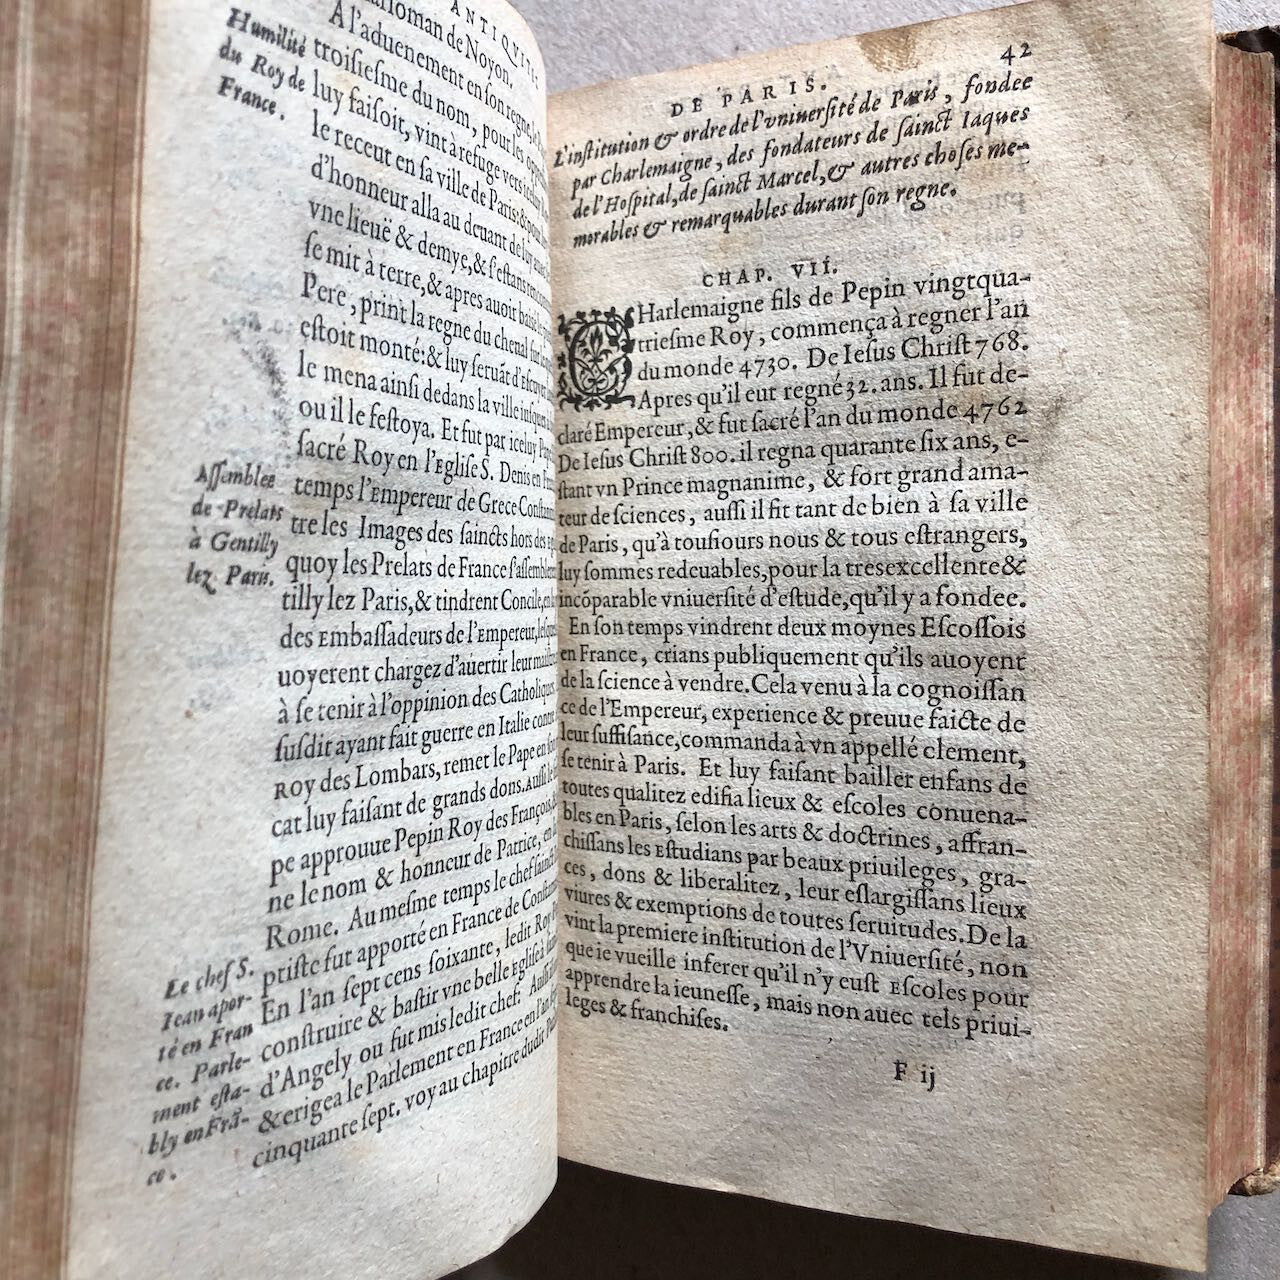 ANTIQVITE
Carloman de Noyon.
A l'aduenement en son regne, le
Humilité
du Roy de
France.
troisiesme du nom, pour les
luy faisoit, vint à refuge vers
le receut en sa ville de Paris: & pour
d'honneur alla au deuant de luy
vne lieuë & demye, & s'estans
se mit à terre, & apres auoir baisé
Pere, print la regne du cheual sur
estoit monté: & luy seruāt d'Escuyer,
le mena ainsi dedans la ville iusques
ou il le festoya. Et fut par iceluy
sacré Roy en l'Eglise S. Denis en
temps l'Empereur de Grece
tre les Images des saincts hors des
Assemblee
de Prelats
à Gentilly
lez Paris.
quoy les Prelats de France s'assemblerent
tilly lez Paris, & tindrent Concile,
des Embassadeurs de l'Empereur,
uoyerent chargez d'auertir leur maistre
à se tenir à l'oppinion des Catholiques.
susdit ayant fait guerre en Italie contre
ROY des Lombars, remet le Pape en son
cat luy faisant de grands dons. Aussi le
pe approuue Pepin Roy des François,
ne le nom & honneur de Patrice, en
Rome. Au mesme temps le chef sainct
Le chef S.
Iean apor-
té en Fran
ce. Parle-
ment esta-
bly en Frā-
ce.
ptiste fut apporté en France de
En l'an sept cens soixante, ledit Roy
construire & bastir vne belle Eglise à
d'Angely ou fut mis ledit chef: Aussi
& erigea le Parlement en France en l'an
cinquante sept. voy au chapitre dudit
DE PARIS.
42
L'institution & ordre de l'vniuersité de Paris, fondee
par Charlemaigne, des fondateurs de sainct Iaques
de l'Hospital, de sainct Marcel, & autres choses me-
morables & remarquables durant son regne.
CHAP. VII.
CHarlemaigne fils de Pepin vingtqua-
triesme Roy, commença à regner l'an
du monde 4730. De Iesus Christ 768.
Apres qu'il eut regné 32. ans. Il fut de-
claré Empereur, & fut sacré l'an du monde 4762
De Iesus Christ 800. il regna quarante six ans, e-
stant vn Prince magnanime, & fort grand ama-
teur de sciences, aussi il fit tant de bien à sa ville
de Paris, qu'à tousiours nous & tous estrangers,
luy sommes redeuables, pour la tresexcellente &
incōparable vniuersité d'estude, qu'il y a fondee.
En son temps vindrent deux moynes Escossois
en France, crians publiquement qu'ils auoyent
de la science à vendre. Cela venu à la cognoissan
ce de l'Empereur, experience & preuue faicte de
leur suffisance, commanda à vn appellé clement,
se tenir à Paris. Et luy faisant bailler enfans de
toutes qualitez edifia lieux & escoles conuena-
bles en Paris, selon les arts & doctrines, affran-
chissans les Estudians par beaux priuileges, gra-
ces, dons & liberalitez, leur eslargissans lieux
viures & exemptions de toutes seruitudes. De la
vint la premiere institution de l'Vniuersité, non
que ie vueille inferer qu'il n'y eust Escoles pour
apprendre la ieunesse, mais non auec tels priui-
leges & franchises.
F ij